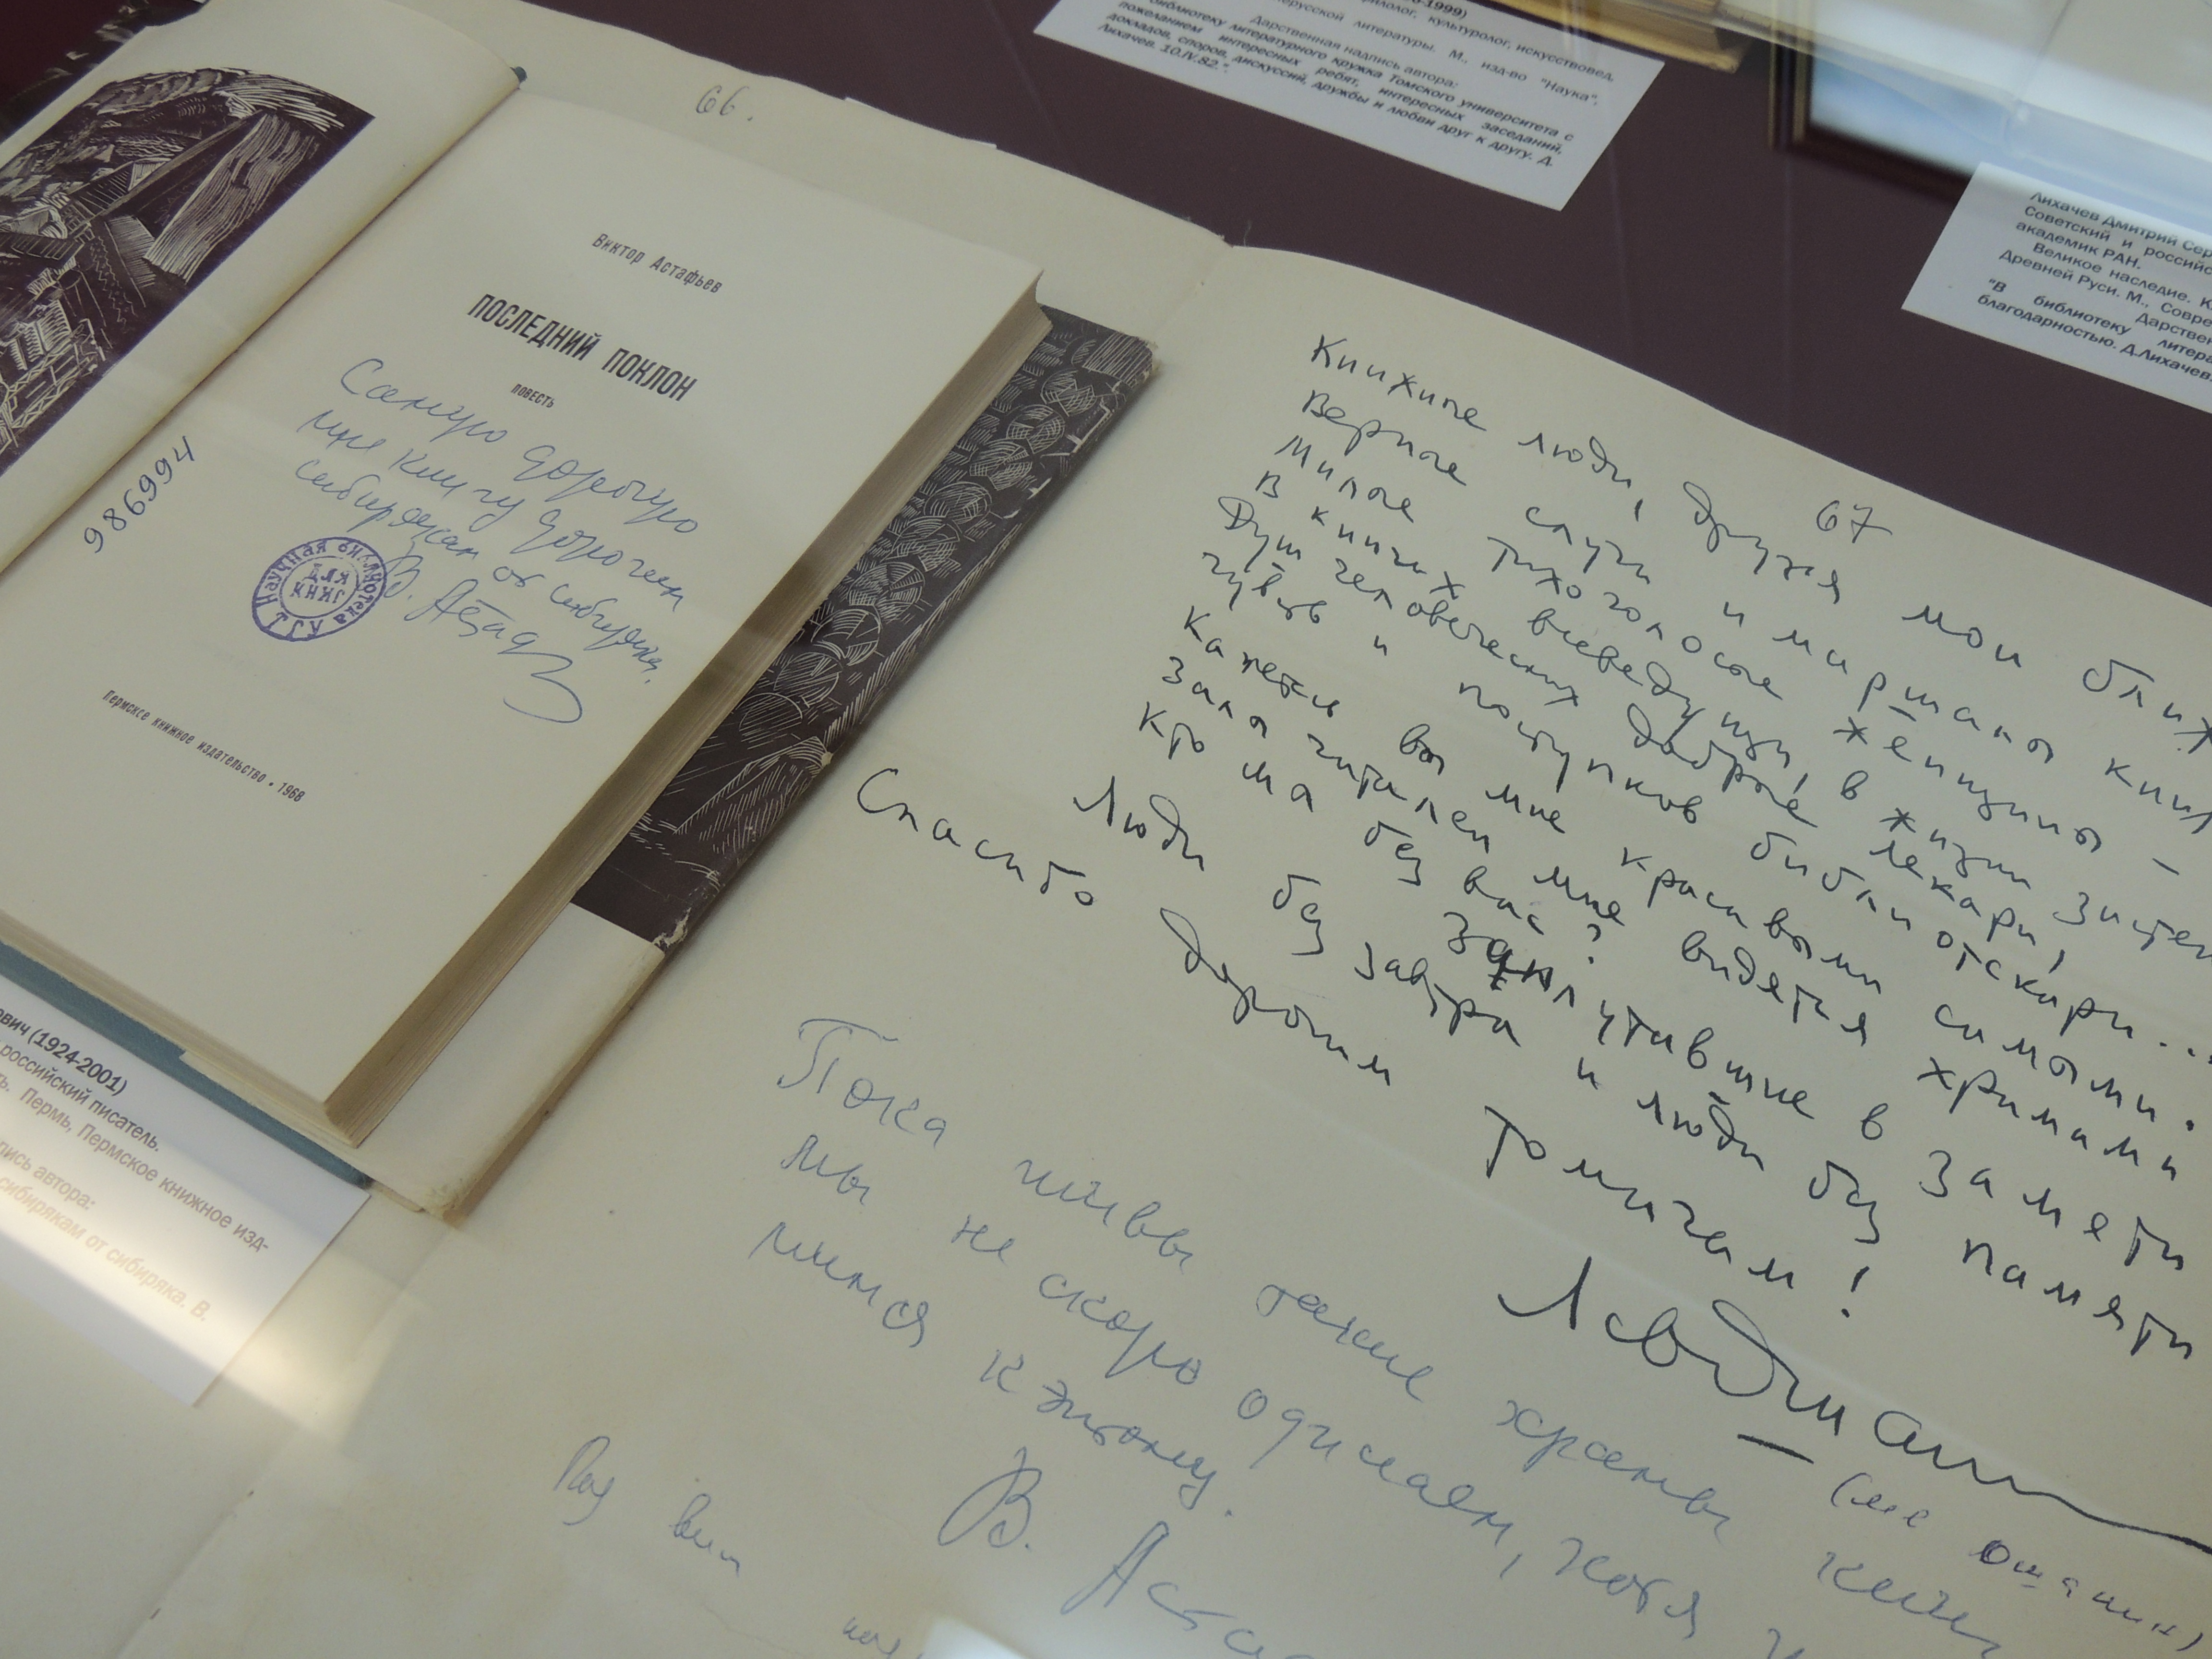 66.
Виктор Астафьев
ПОСЛЕДНИЙ ПОКЛОН
ПОВЕСТЬ
Самую дорогую
мне книгу дорогим
сибирякам от сибиряка.
В. Астаф
Научная библиотека
ДЛЯ
КНИГ
986994
Пермское книжное издательство • 1968
ович (1924-2001)
российский писатель.
ть. Пермь, Пермское книжное изд-
пись автора:
сибирякам от сибиряка. В.
-1999)
филолог, культуролог, искусствовед,
русской литературы. М., изд-во "Наука",
Дарственная надпись автора:
библиотеку литературного кружка Томского университета с
пожеланием интересных ребят, интересных заседаний,
докладов, споров, дискуссий, дружбы и любви друг к другу. Д.
Лихачев. 10.IV.82.".
Лихачев Дмитрий Сер
Советский и российс
академик РАН.
Великое наследие. К
Древней Руси. М., Совре
Дарствен
"В библиотеку литера
благодарностью. Д.Лихачев.
67
Книжные люди, друзья мои ближ
Верные слуги и маршалы книг
Милые тихоголосые женщины –
В книгах всеведущи, в жизни застен
Душ человеческих добрые лекари,
чувств и поступков библиотекари...
Кажетесь вы мне красивыми самыми.
Залы читален мне видятся храмами
Кто мы без вас?
Заплутавшие в замети
Люди без завтра и люди без памяти
Спасибо дорогим томичам!
Л Ошанин
(Лев Ошанин)
Пока живы такие храмы кни
мы не скоро одичаем, хотя и
мимся к этому.
В. Аста